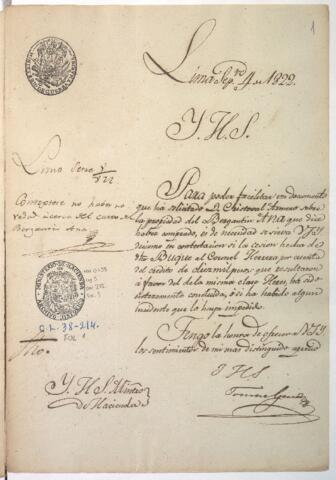 1
Lima Sepre 4 de 1822.
Y. H. S.
Para poder facilitar un documento
que ha solicitado D. Christoval Armero sobre
la propiedad del Bergantin Ana que dice
haber comprado, es de necesidad se sirva V.S.Y.
decirme en contextacion si la cesion hecha de
dho Buque al Coronel Herrera por cuenta
del crédito de diez mil pesos que resultaron
á favor del de la misma clase Heres, ha sido
enteramente concluida, ó si ha habido algun
incidente que lo haya impedido.
Tengo la honra de ofrecer á V.S.Y.
los sentimientos de mi mas distinguido aprecio
Y. H. S.
Lima Setre
822
Contextese no haber no
vedad acerca del
Bergantin Ana
MINISTERIO DE HACIENDA
O.L. 38-214.
FOL 1
Y. H. S. Mintro
de Hacienda